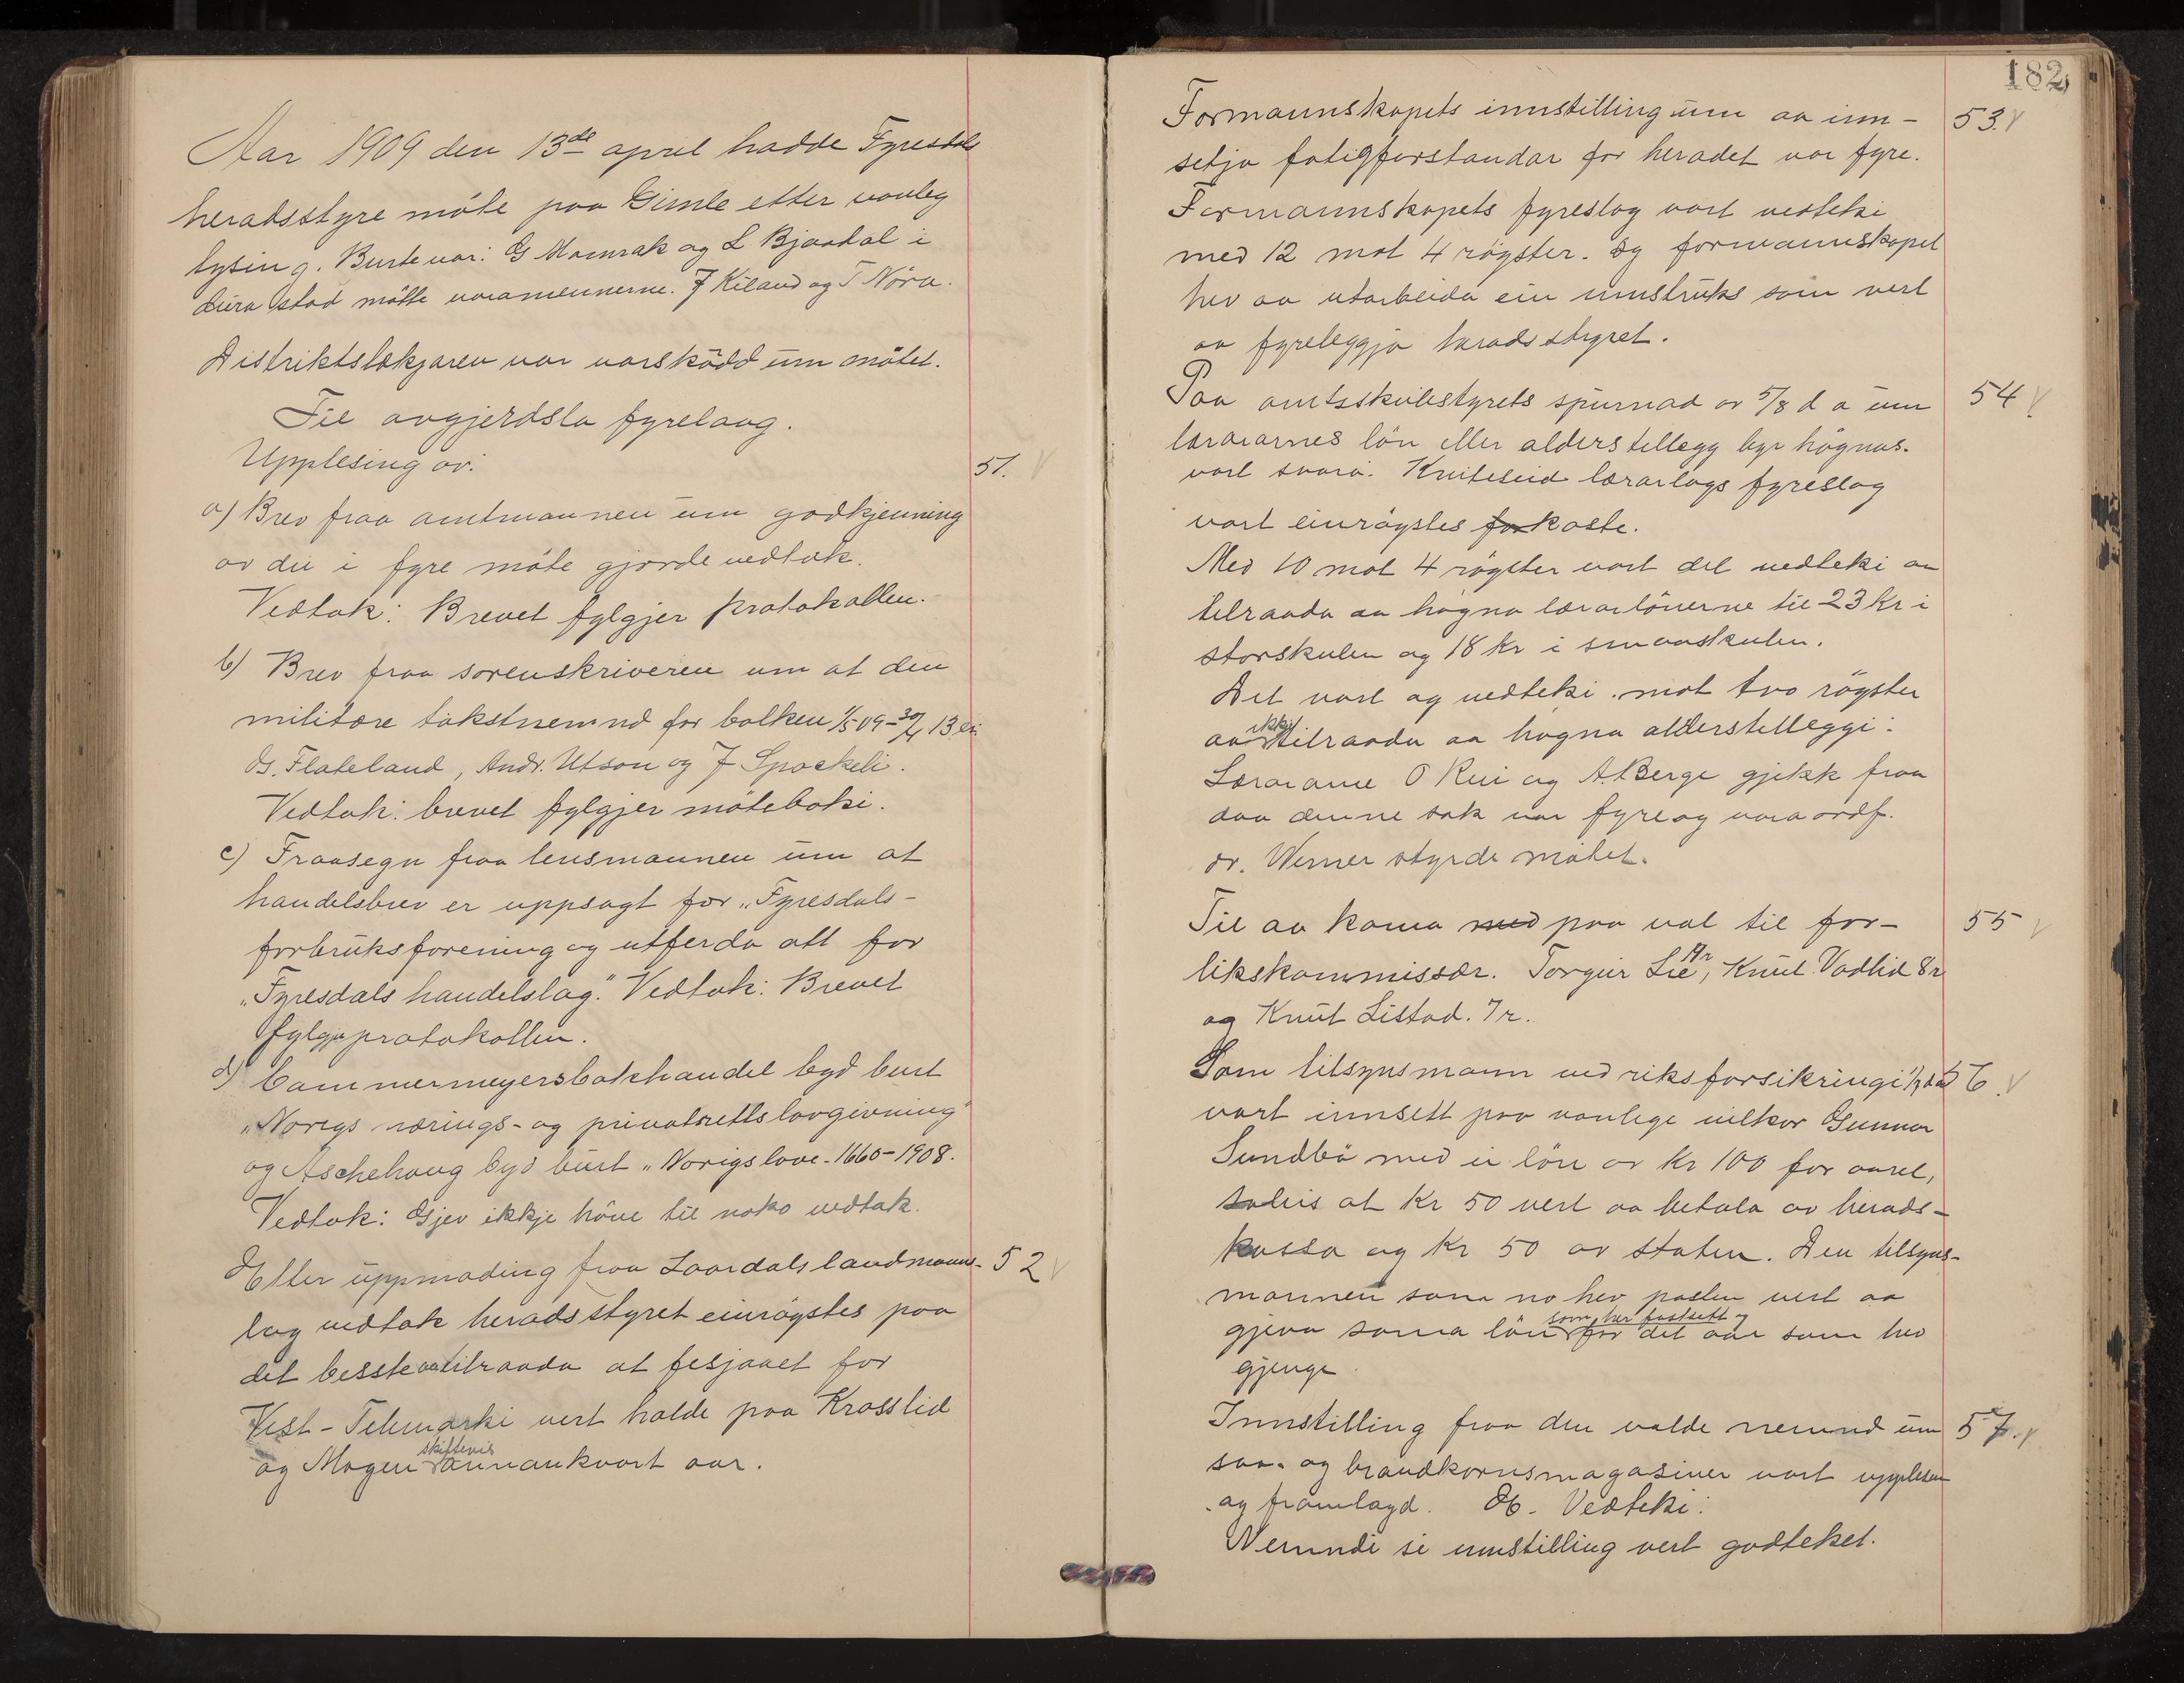 Aar 1909 den 13de april hadde Fyresdals
heradsstyre möte paa Gimle etter vanleg
lysing. Burte var: G Momrak og L Bjaadal i
deira stad mötte varamennerne. J Kiland og T Nöra.
Distriktslækjaren var varsködd um mötet.
Til avgjerdsla fyrelaag.
Upplesing av:
51.
a) Brev fraa amtmannen um godkjenning
av dei i fyre möte gjorde vedtak.
Vedtak: Brevet fylgjer protokollen.
b) Brev fraa sorenskriveren um at den
militære takstnemnd for bolken 1/5 09-30/4 13 er:
G. Flateland, Andr. Utson og J Spockeli.
Vedtak: brevet fylgjer möteboki.
c) Fraasegn fraa lensmannen um at
handelsbrev er uppsagt for „Fyresdals-
forbruksforening og utferda att for
„Fyresdals handelslag." Vedtak: Brevet
fylgje protokollen.
d) Cammermeyersbokhandel byd burt
„Norigs nærings- og privatrettslovgivning"
og Aschehoug byd burt „Norigs love-1660-1908.
Vedtak: Gjev ikkje höve til noko vedtak.
Etter uppmoding fraa Laardals landmanns-
52
lag vedtok heradsstyret einrögstes paa
det besste aa tilraada at fesjaaet for
Vest-Telemarki vert halde paa Krosslid
skiftevis
og Mogen annankvart aar.
182
Formannskapets innstilling um aa inn-
53.
setja fatigforstandar for heradet var fyre.
Formannskapets fyreslag vart vedteki
med 12 mot 4 rögster. Og formannskapet
hev aa utarbeida ein innstruks som vert
aa fyreleggja heradsstyret.
Paa amtsskulestyrets spurnad av 5/8 d a um
54
lærararnes lön eller alderstillegg bör högnas.
vart svara: Kviteseid lærarlags fyreslag
vart einrögstes forkaste.
Med 10 mot 4 rögster vart det vedteki aa
tilraada aa högna lærarlönerne til 23 Kr i
storskulen og 18 kr i smaaskulen.
Det vart og vedteki mot tvo rögster
ikkje
aa tilraada aa högna alderstilleggi:
Lærarane O Rui og A. Berge gjekk fraa
daa denne sak var fyre og varaordf.
dr. Werner styrde mötet.
Til aa koma med paa val til for-
55
likskommissær. Torgeir Lie 9r, Knut Vadlid 8r
og Knut Listad. 7r.
Som tilsynsmann ved riksforsikringi 1/7 da
56.
vart innsett paa vanlege vilkor Gunnar
Sundbö med ei lön av Kr 100 for aaret,
soleis at Kr 50 vert aa betala av herads-
kassa og Kr 50 av staten. Den tilsyns-
mannen som no hev posten vert aa
som her fastsett
gjeva soma lön for det aar som hev
gjenge.
Innstilling fraa den valde nemnd um
57.
saa- og brandkornsmagasiner vart upplesen
og framlagd. Vedteki:
Nemndi si innstilling vert godteket.